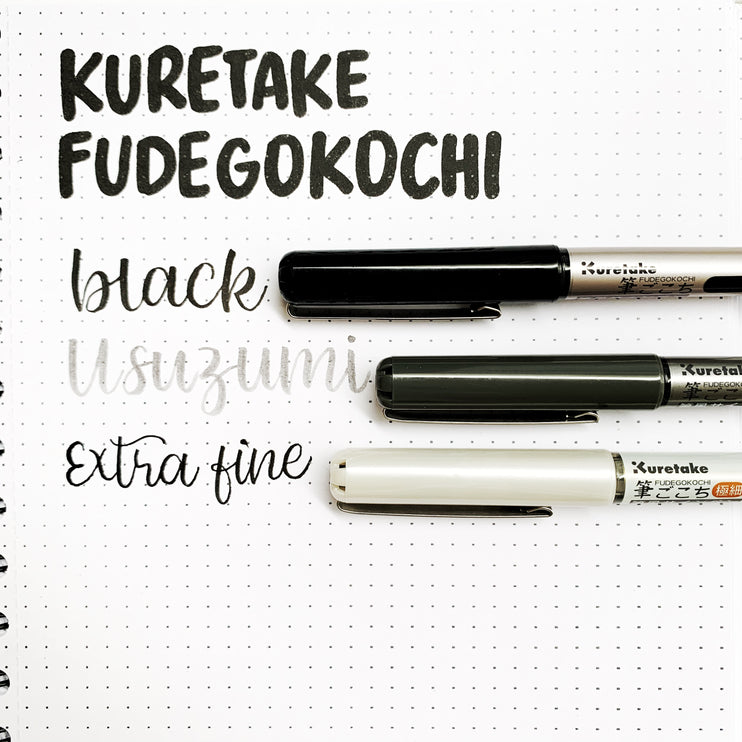 KURETAKE
FUDEGOKOCHI
black
Kuretake
FUDEGOKOCHI
筆ごこち
Usuzumi
Kuretake
FUDEGOKOCHI
筆ごこち
extra fine
Kuretake
FUDEGOKOCHI
筆ごこち 極細